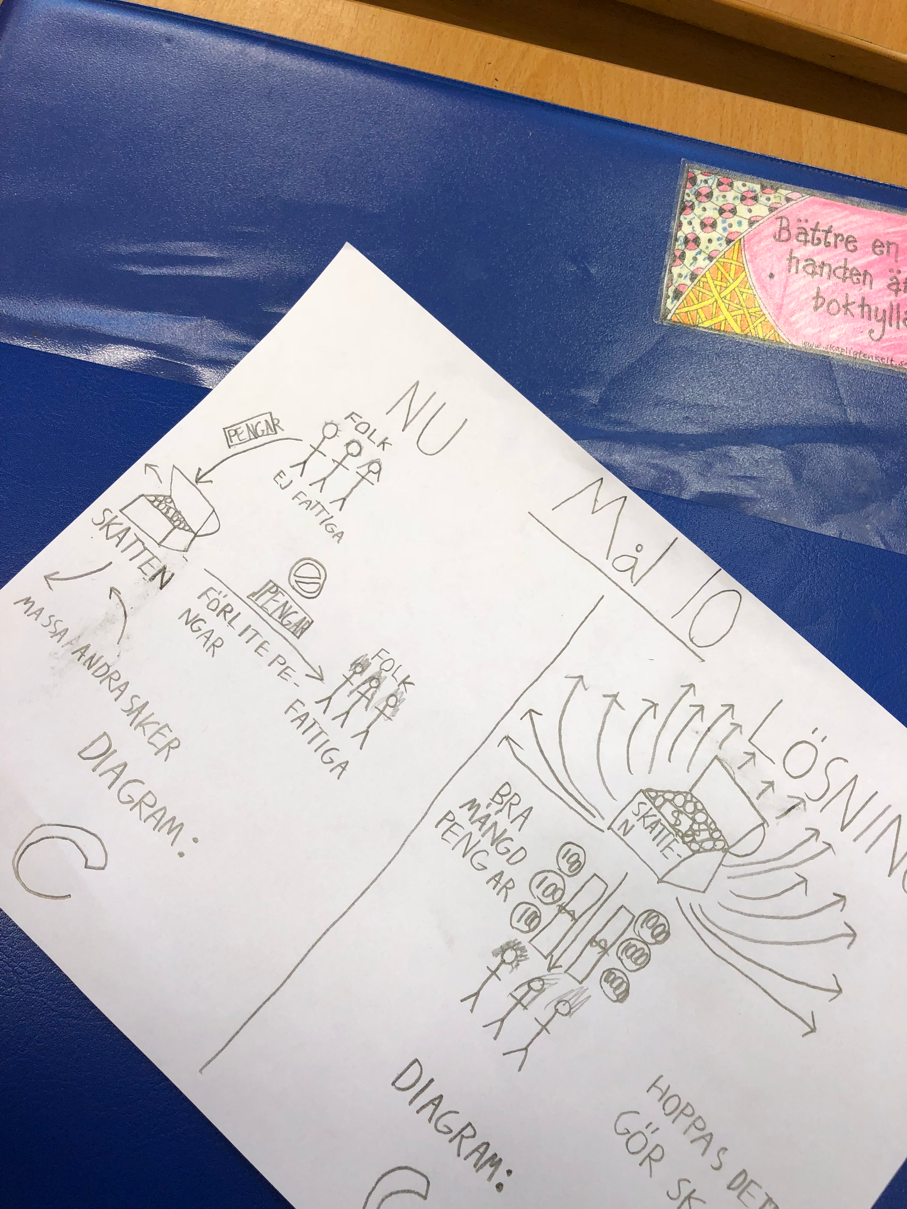 Bättre en
handen än
bokhylla
NU
FOLK
PENGAR
EJ FATTIGA
SKATTEN
MASSA ANDRA SAKER
PENGAR
FÖR LITE PE-
NGAR
FOLK
FATTIGA
DIAGRAM:
Mål 10
LÖSNING
SKATTE-
N
BRA
MÄNGD
PENGAR
100
100
100
1000
1000
1000
DIAGRAM:
HOPPAS DET
GÖR SK